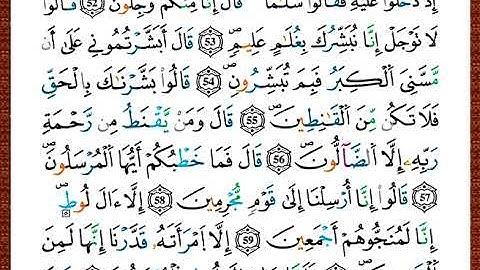 إِذْ دَخَلُوا۟ عَلَيْهِ فَقَالُوا۟ سَلَـٰمًا قَالَ إِنَّا مِنكُمْ وَجِلُونَ ۝٥٢ قَالُوا۟
لَا تَوْجَلْ إِنَّا نُبَشِّرُكَ بِغُلَـٰمٍ عَلِيمٍ ۝٥٣ قَالَ أَبَشَّرْتُمُونِى عَلَىٰٓ أَن
مَّسَّنِىَ ٱلْكِبَرُ فَبِمَ تُبَشِّرُونَ ۝٥٤ قَالُوا۟ بَشَّرْنَـٰكَ بِٱلْحَقِّ
فَلَا تَكُن مِّنَ ٱلْقَـٰنِطِينَ ۝٥٥ قَالَ وَمَن يَقْنَطُ مِن رَّحْمَةِ
رَبِّهِۦٓ إِلَّا ٱلضَّآلُّونَ ۝٥٦ قَالَ فَمَا خَطْبُكُمْ أَيُّهَا ٱلْمُرْسَلُونَ
۝٥٧ قَالُوٓا۟ إِنَّآ أُرْسِلْنَآ إِلَىٰ قَوْمٍ مُّجْرِمِينَ ۝٥٨ إِلَّآ ءَالَ لُوطٍ
إِنَّا لَمُنَجُّوهُمْ أَجْمَعِينَ ۝٥٩ إِلَّا ٱمْرَأَتَهُۥ قَدَّرْنَآ إِنَّهَا لَمِنَ